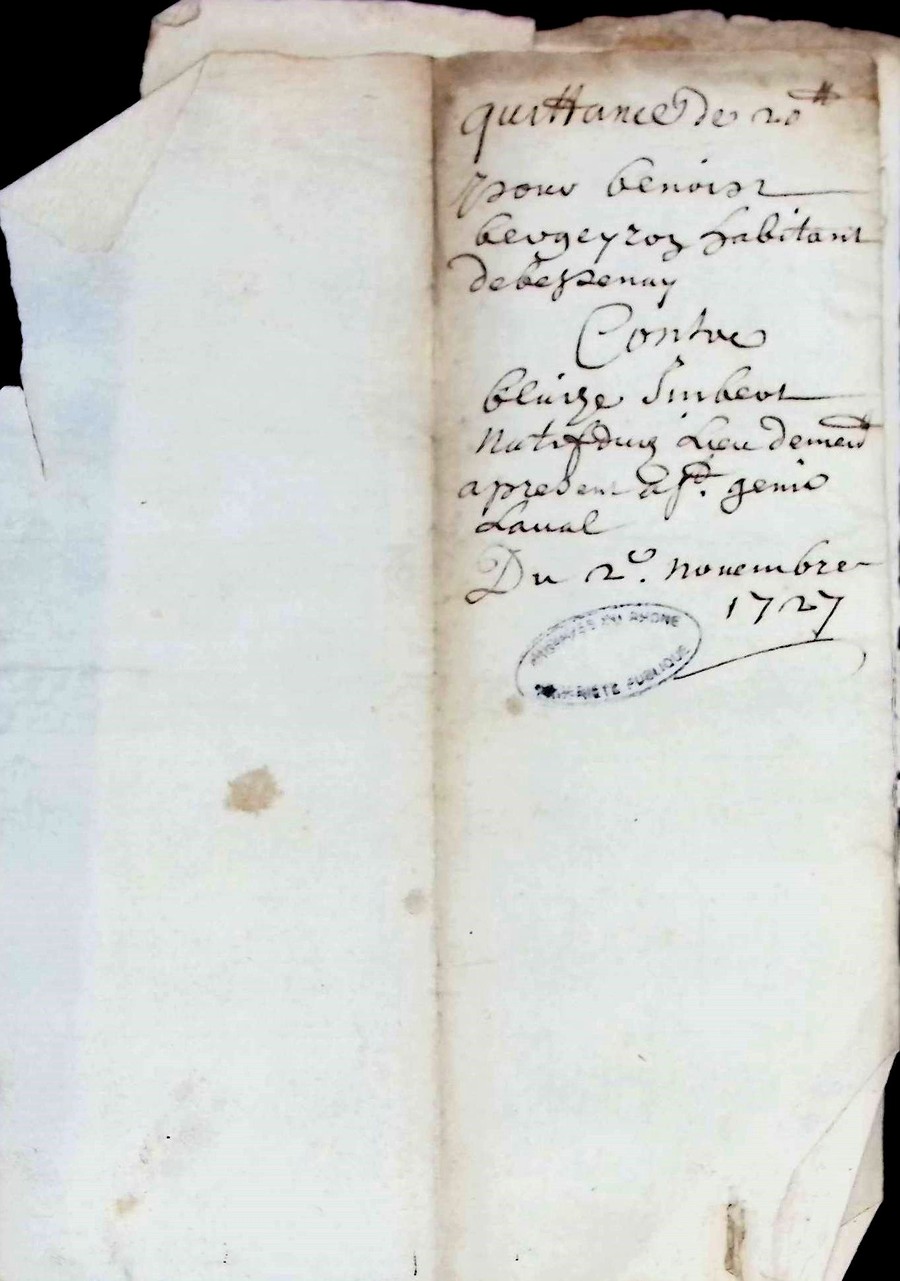 quittance de 20 ₶
pour benoist
bergeyron habitant
de bessenay
Contre
blaize Imbert
natif dud lieu dement
a present a st. genis
Laual
Du 2e. nouembre
1727
ARCHIVES DU RHONE
PROPRIÉTÉ PUBLIQUE